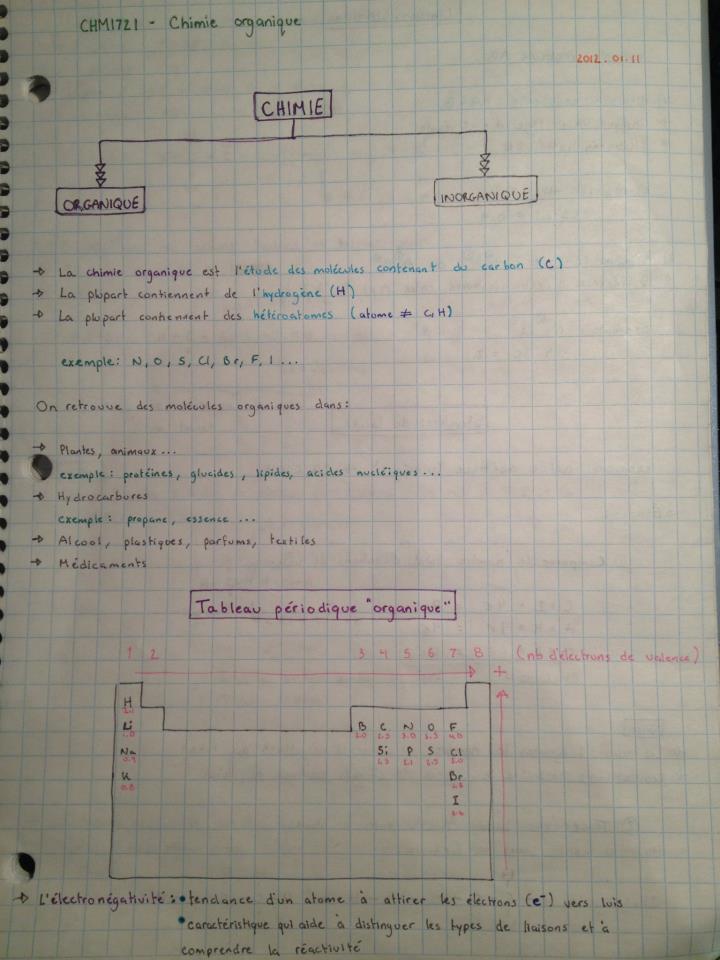 CHM1721 - Chimie organique
2012.01.11
CHIMIE
ORGANIQUE
INORGANIQUE
→ La chimie organique est l'étude des molécules contenant du carbon (C)
→ La plupart contiennent de l'hydrogène (H)
→ La plupart contiennent des hétéroatomes (atome ≠ C, H)
exemple: N, O, S, Cl, Br, F, I ...
On retrouve des molécules organiques dans:
→ Plantes, animaux...
exemple: protéines, glucides, lipides, acides nucléiques...
→ Hydrocarbures
exemple: propane, essence ...
→ Alcool, plastiques, parfums, textiles
→ Médicaments
Tableau périodique "organique"
1 2 3 4 5 6 7 8 (nb d'électrons de valence)
+
H
Li B C N O F
1.0 2.0 2.5 3.0 3.5 4.0
Na Si P S Cl
0.9 2.1 2.5
K Br
0.8 2.8
I
L'électronégativité: • tendance d'un atome à attirer les électrons (e⁻) vers luis
• caractéristique qui aide à distinguer les types de liaisons et à
comprendre la réactivité